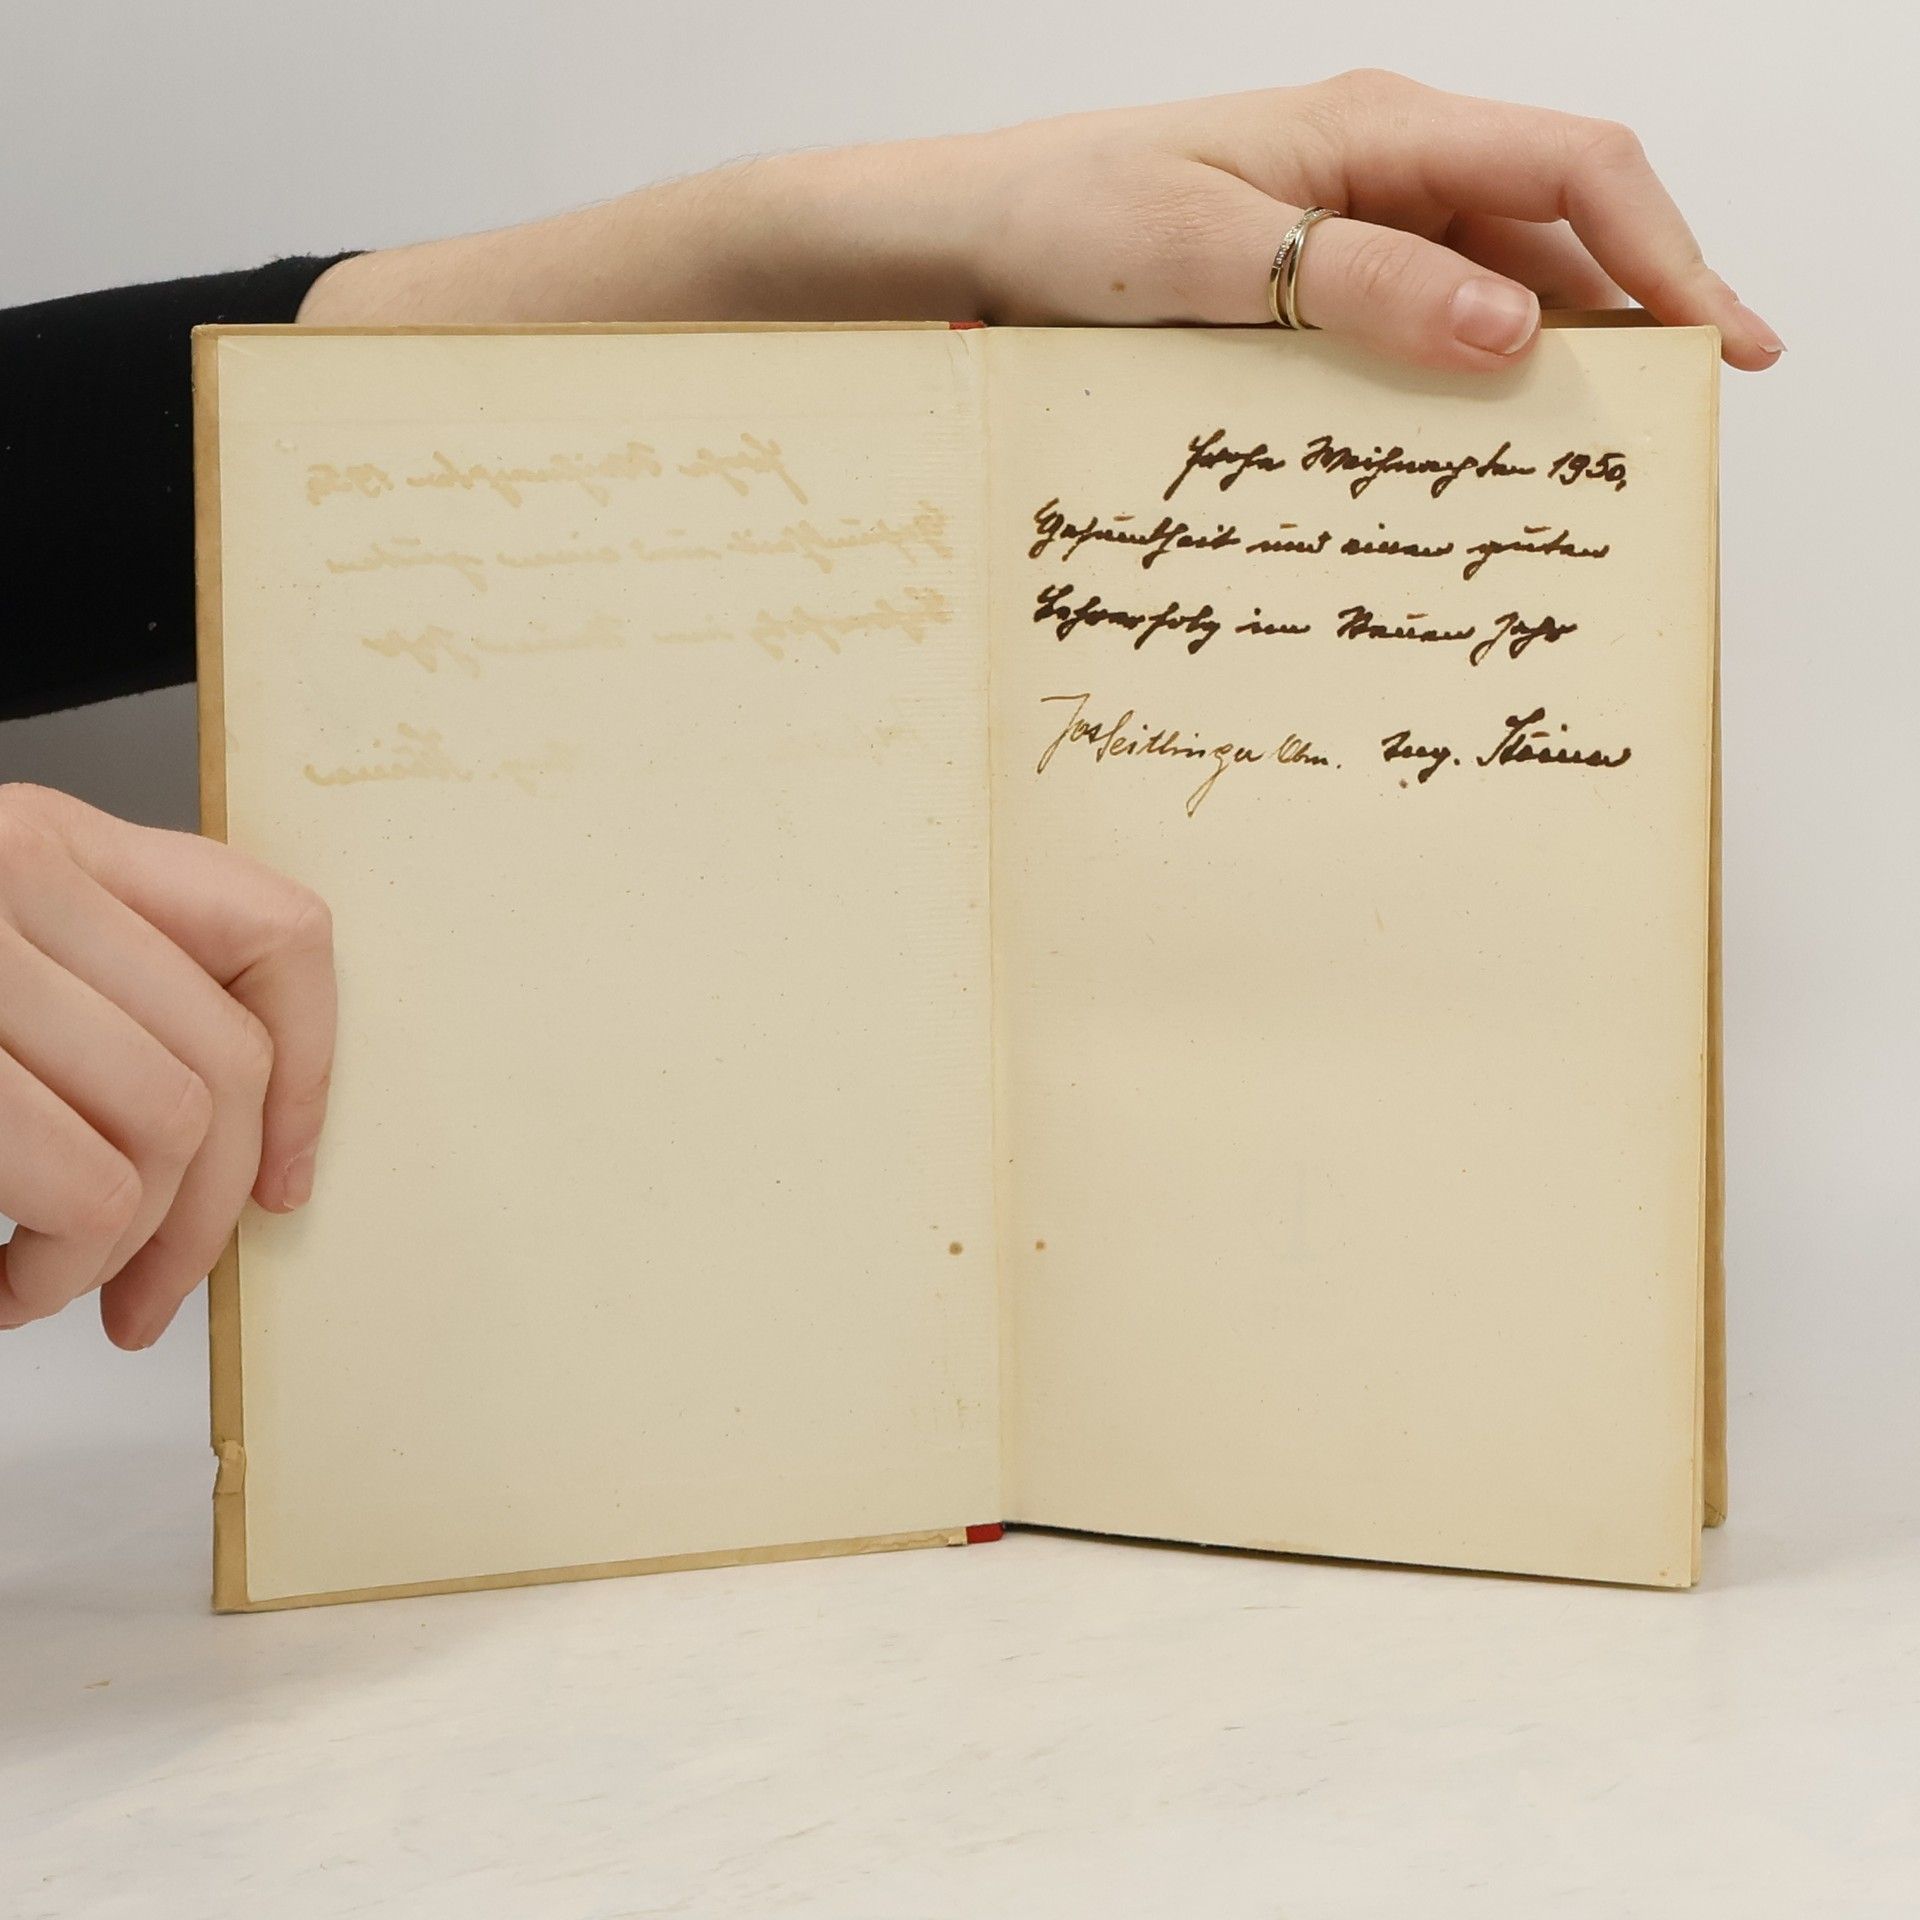 Frohe Weihnachten 1950,
Gesundheit und einen guten
Lehrerfolg im Neuen Jahr
Jos Seitlinger Obm. Ing. Steiner